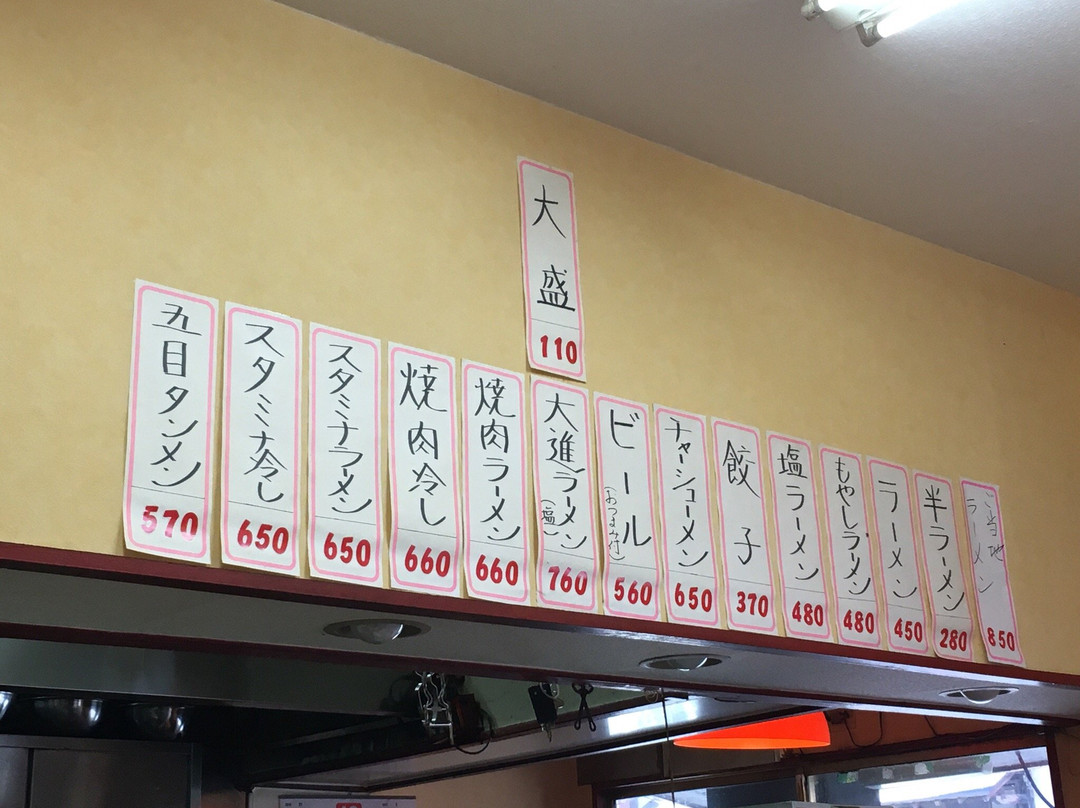 大盛
110
ご当地ラーメン
850
半ラーメン
280
ラーメン
450
もやしラーメン
480
塩ラーメン
480
餃子
370
チャーシューメン
650
ビール
(おつまみ付)
560
大進ラーメン
(塩)
760
焼肉ラーメン
660
焼肉冷し
660
スタミナラーメン
650
スタミナ冷し
650
五目タンメン
570